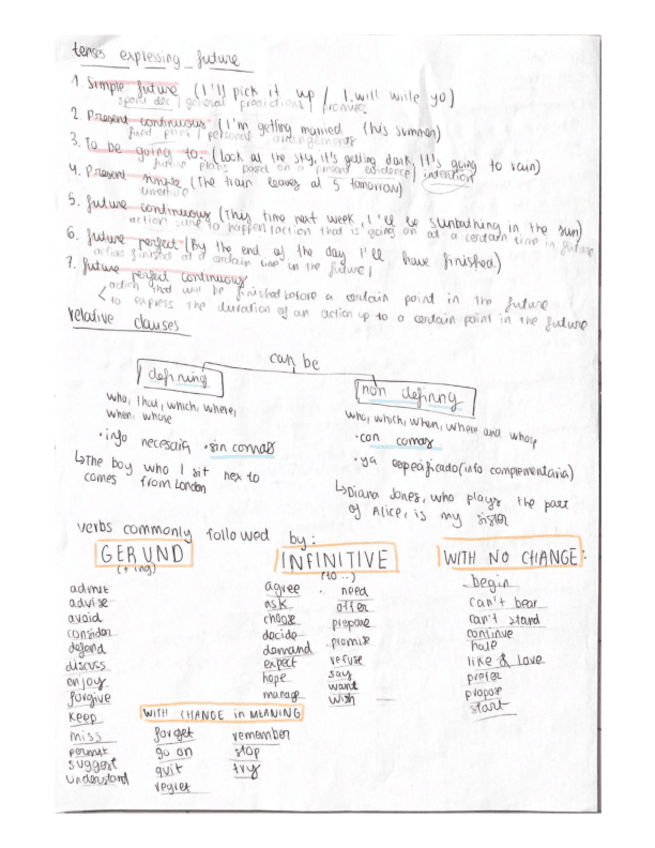 tenses expressing future
1. Simple future (I'll pick it up / I will write yo)
spont dec / general predictions / promises
2. Present continuous (I'm getting married this summer)
fixed plans / personal arrangements
3. To be going to: (Look at the sky, it's getting dark, It's going to rain)
future plans based on a present evidence / intention
4. Present simple (The train leaves at 5 tomorrow)
timetable
5. future continuous (This time next week, I'll be sunbathing in the sun)
action sure to happen/action that is going on at a certain time in future
6. future perfect (By the end of the day I'll have finished)
action finished at a certain time in the future
7. future perfect continuous
action that will be finished before a certain point in the future
to express the duration of an action up to a certain point in the future
relative clauses
can be
defining
who, that, which, where,
when, whose
• info necesaria • sin comas
↳The boy who I sit nex to
comes from London
non defining
who, which, when, where and whose
• con comas
• ya especificado (info complementaria)
↳Diana Jones, who plays the part
of Alice, is my sister
verbs commonly followed by:
GERUND
(+ ing)
admit
advise
avoid
consider
defend
discuss
enjoy
forgive
keep
miss
permit
suggest
understand
INFINITIVE
(to ..)
agree
ask
choose
decide
demand
expect
hope
manage
need
offer
prepare
promise
refuse
say
want
wish
WITH NO CHANGE:
begin
can't bear
can't stand
continue
hate
like & love
prefer
propose
start
WITH CHANGE in MEANING
forget
go on
quit
regret
remember
stop
try